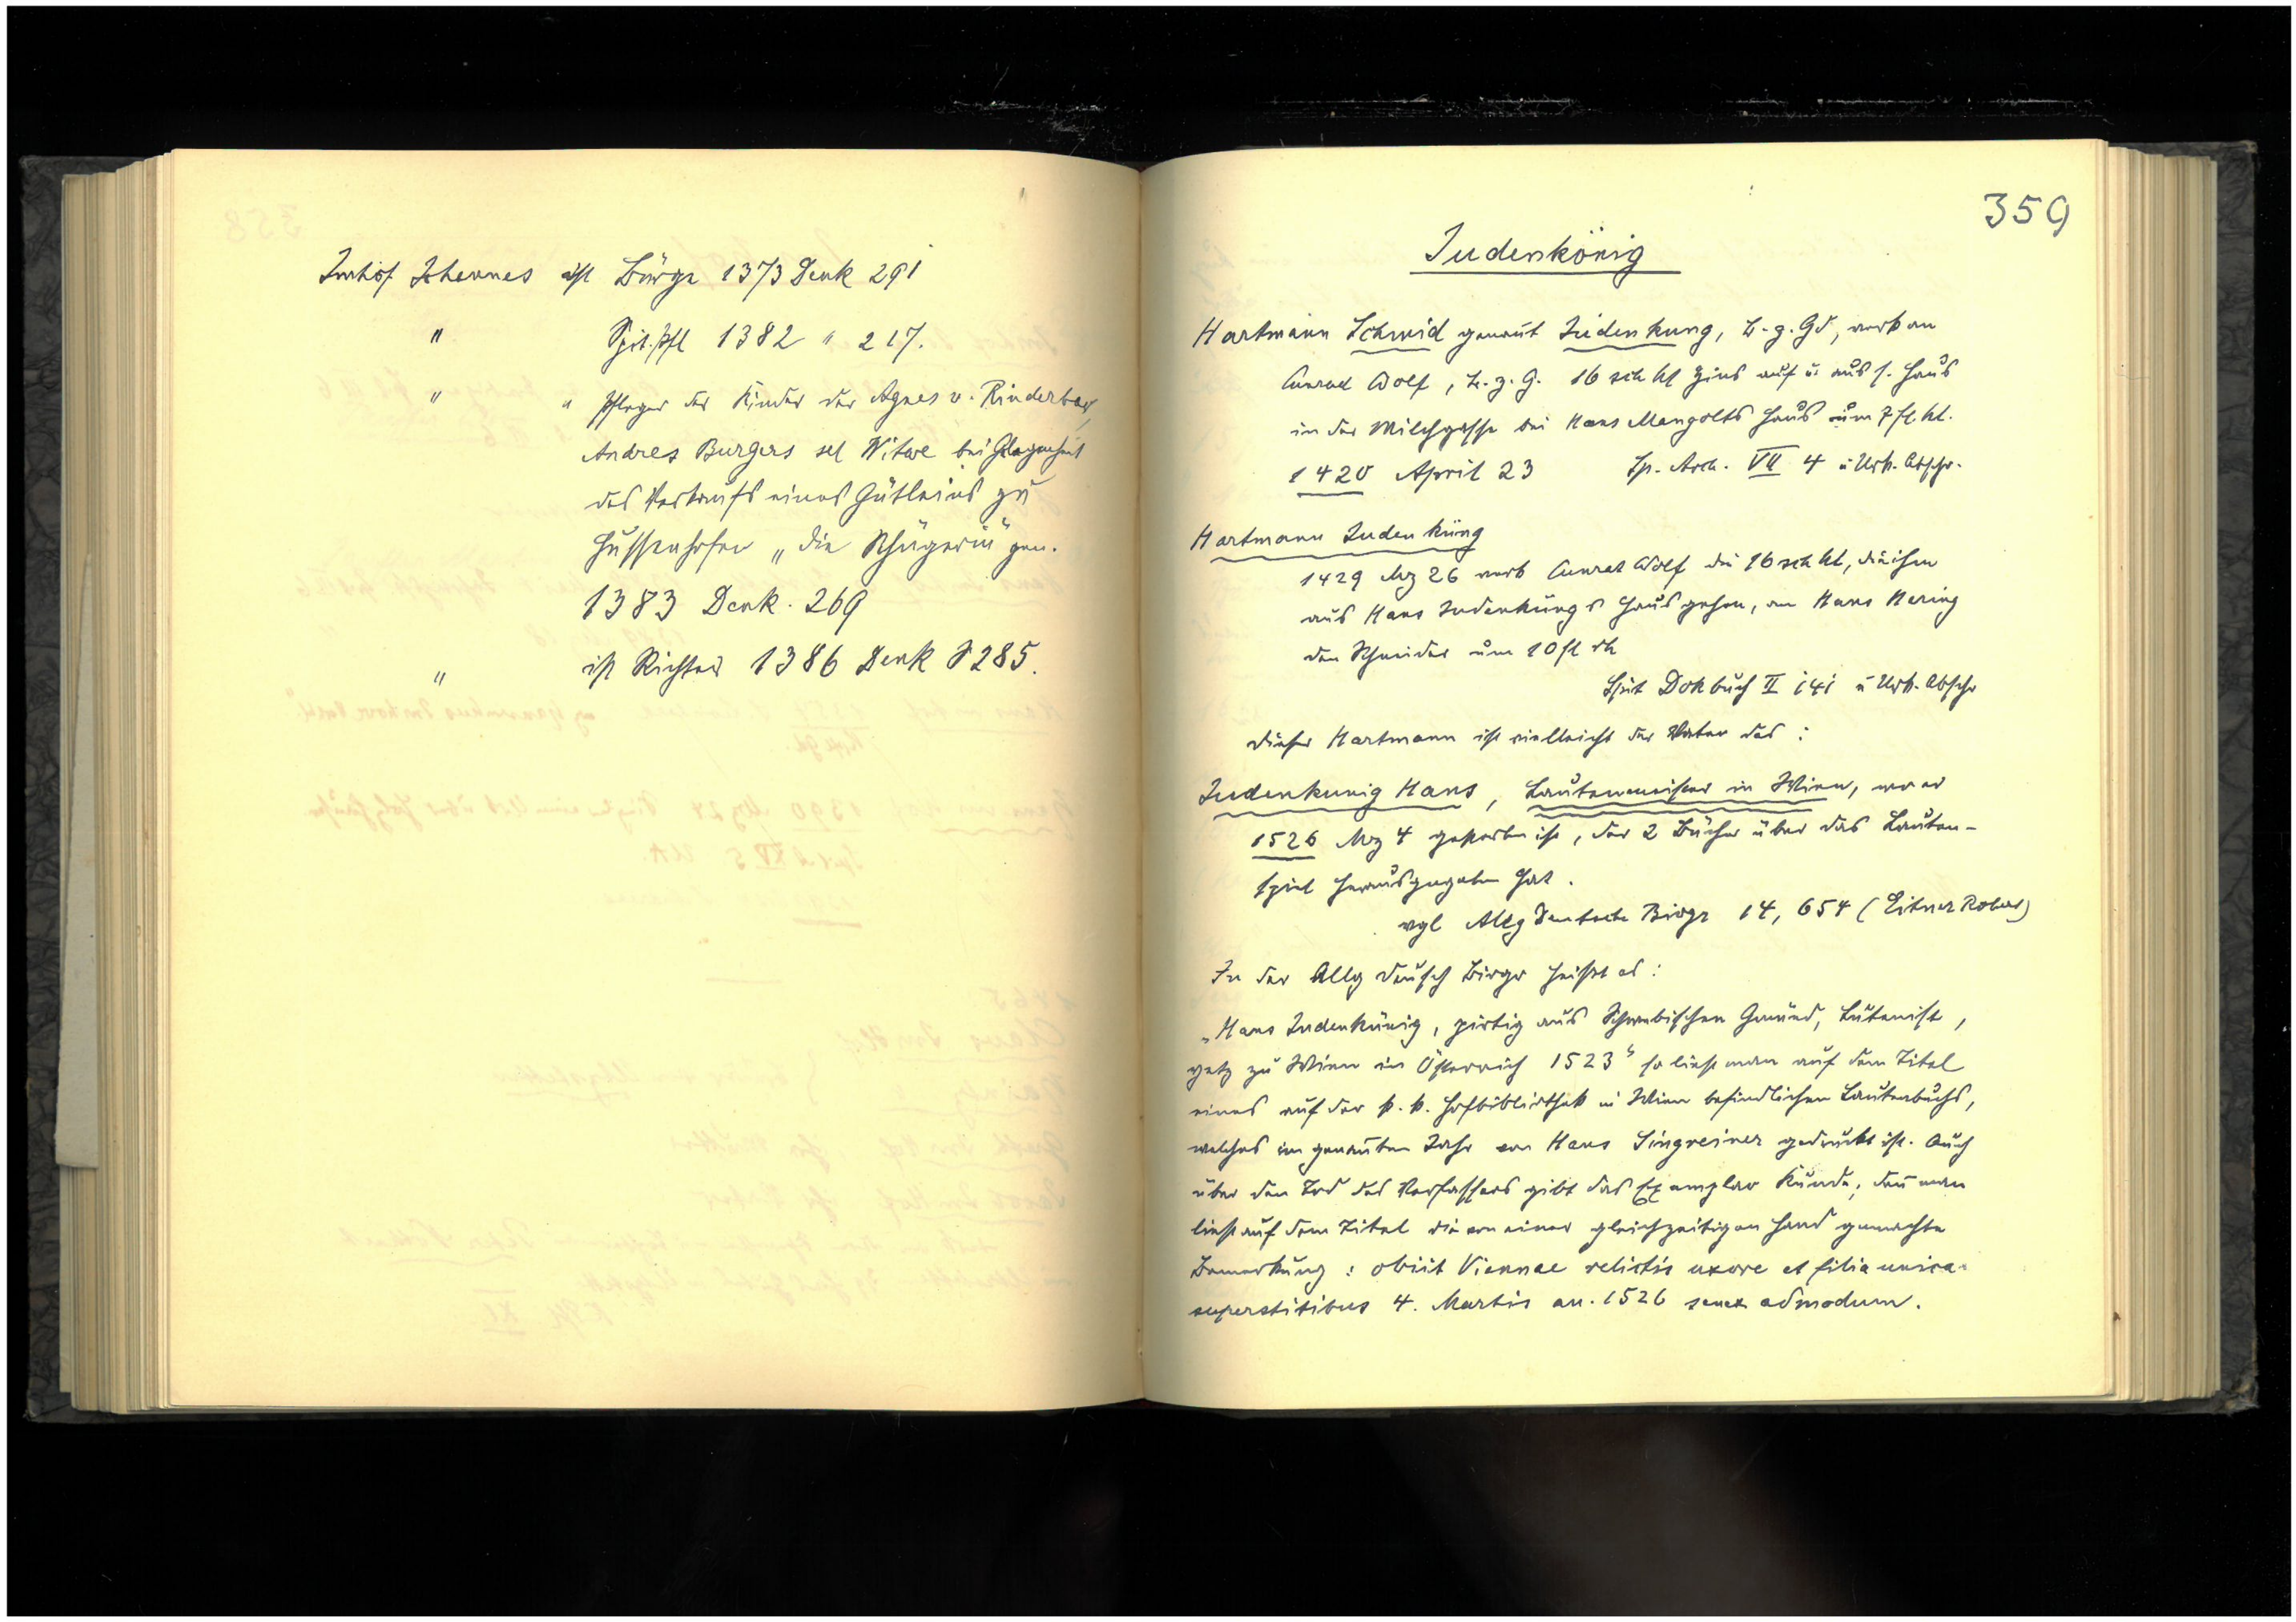 Imhof Johannes ist Bürge 1373 Denk 291
" Spit.pfl 1382 " 217.
" " Pfleger der Kinder der Agnes v. Rinderbach,
Andres Burgers sel Witwe bei Gelegenheit
des Verkaufs eines Gütleins zu
Hussenhofen „die Schügerin" gen.
1383 Denk. 269
" ist Richter 1386 Denk S 285.
359
Judenkönig
Hartmann Schmid genant Judenkung, B. z. Gd, verk an
Cunrad Wolf, B. z. G. 16 sch hl Zins auf u. aus s. Haus
in der Milchgasse bei Hans Mangolts Haus um 7 fl. hl.
1420 April 23 Sp. Arch. VII 4 u Urk. Abschr.
Hartmann Judenküng
1429 Mz 26 verk Cunrat Wolf die 16 sch hl, die ihm
aus Hans Judenküngs Haus gehen, an Hans Hering
den Schneider um 10 fl rh
Spit Dokbuch II 141 u Urk. Abschr
Dieser Hartmann ist vielleicht der Vater des:
Judenkunig Hans, Lautenmeister in Wien, wo er
1526 Mz 4 gestorben ist, der 2 Bücher über das Lauten-
spiel herausgegeben hat.
vgl Allg Deutsche Biogr 14, 654 (Eitner Robert)
In der Allg Deutsch Biogr heißt es:
„Hans Judenkünig, pirtig aus Schwebischen Gmünd, Lutenist,
yetz zu Wien in Österreich 1523" so liest man auf dem Titel
eines auf der k. k. Hofbibliothek in Wien befindlichen Lautenbuchs,
welches im genauten Jahr von Hans Singreiner gedruckt ist. Auch
über den Tod des Verfassers gibt das Exemplar Kunde, den man
liest auf dem Titel die von einer gleichzeitigen Hand gemachte
Bemerkung: obiit Viennae relictis uxore et filia unica
superstitibus 4. Martis an. 1526 senex admodum.